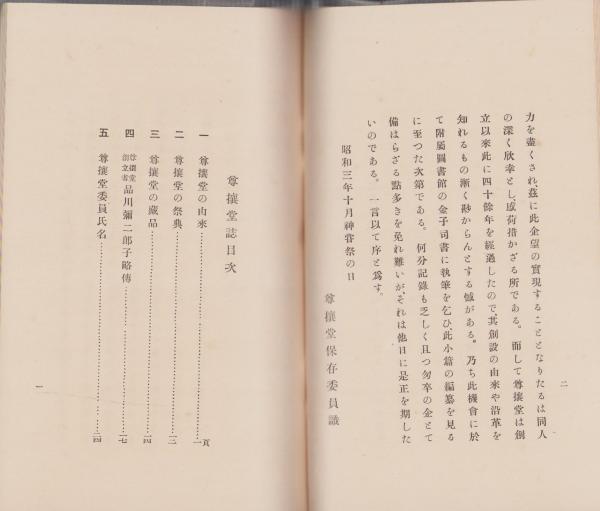 力を盡くされ、茲に此企望の實現することとなりたるは同人
の深く欣幸とし、感荷措かざる所である。而して尊攘堂は創
立以來此に四十餘年を經過したので其創設の由來や沿革を
知れるもの漸く尠からんとする憾がある。乃ち此機會に於
て附屬圖書館の金子司書に執筆を乞ひ、此小篇の編纂を見る
に至つた次第である。何分記錄も乏しく且つ匆卒の企とて
備はらざる點多きを免れ難いが、それは他日に是正を期した
いのである。一言以て序と爲す。
昭和三年十月神甞祭の日
尊攘堂保存委員識
二
尊攘堂誌目次
一 尊攘堂の由來…………一頁
二 尊攘堂の祭典…………一三
三 尊攘堂の藏品…………一四
四 尊攘堂創立者品川彌二郎子略傳…………一七
五 尊攘堂委員氏名…………二四
一